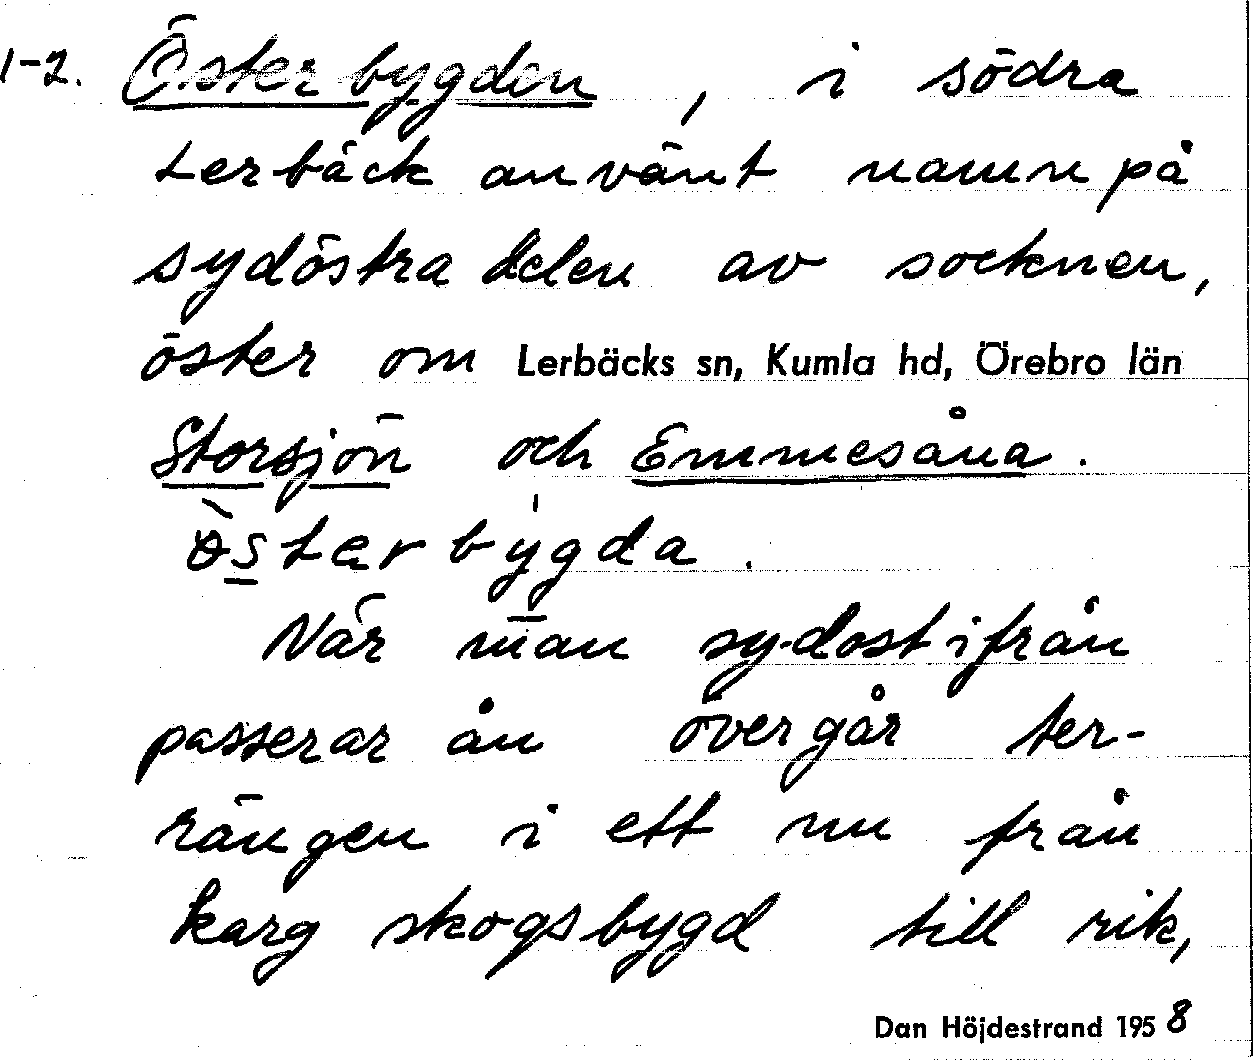 1-2. Österbygden, i södra
Lerbäck använt namn på
sydöstra delen av socknen,
öster om Lerbäcks sn, Kumla hd, Örebro län
Storsjön och Emmesåna.
Österbygda.
När man sydostifrån
passerar ån övergår ter-
rängen i ett nu från
karg skogsbygd till rik,
Dan Höjdestrand 1958